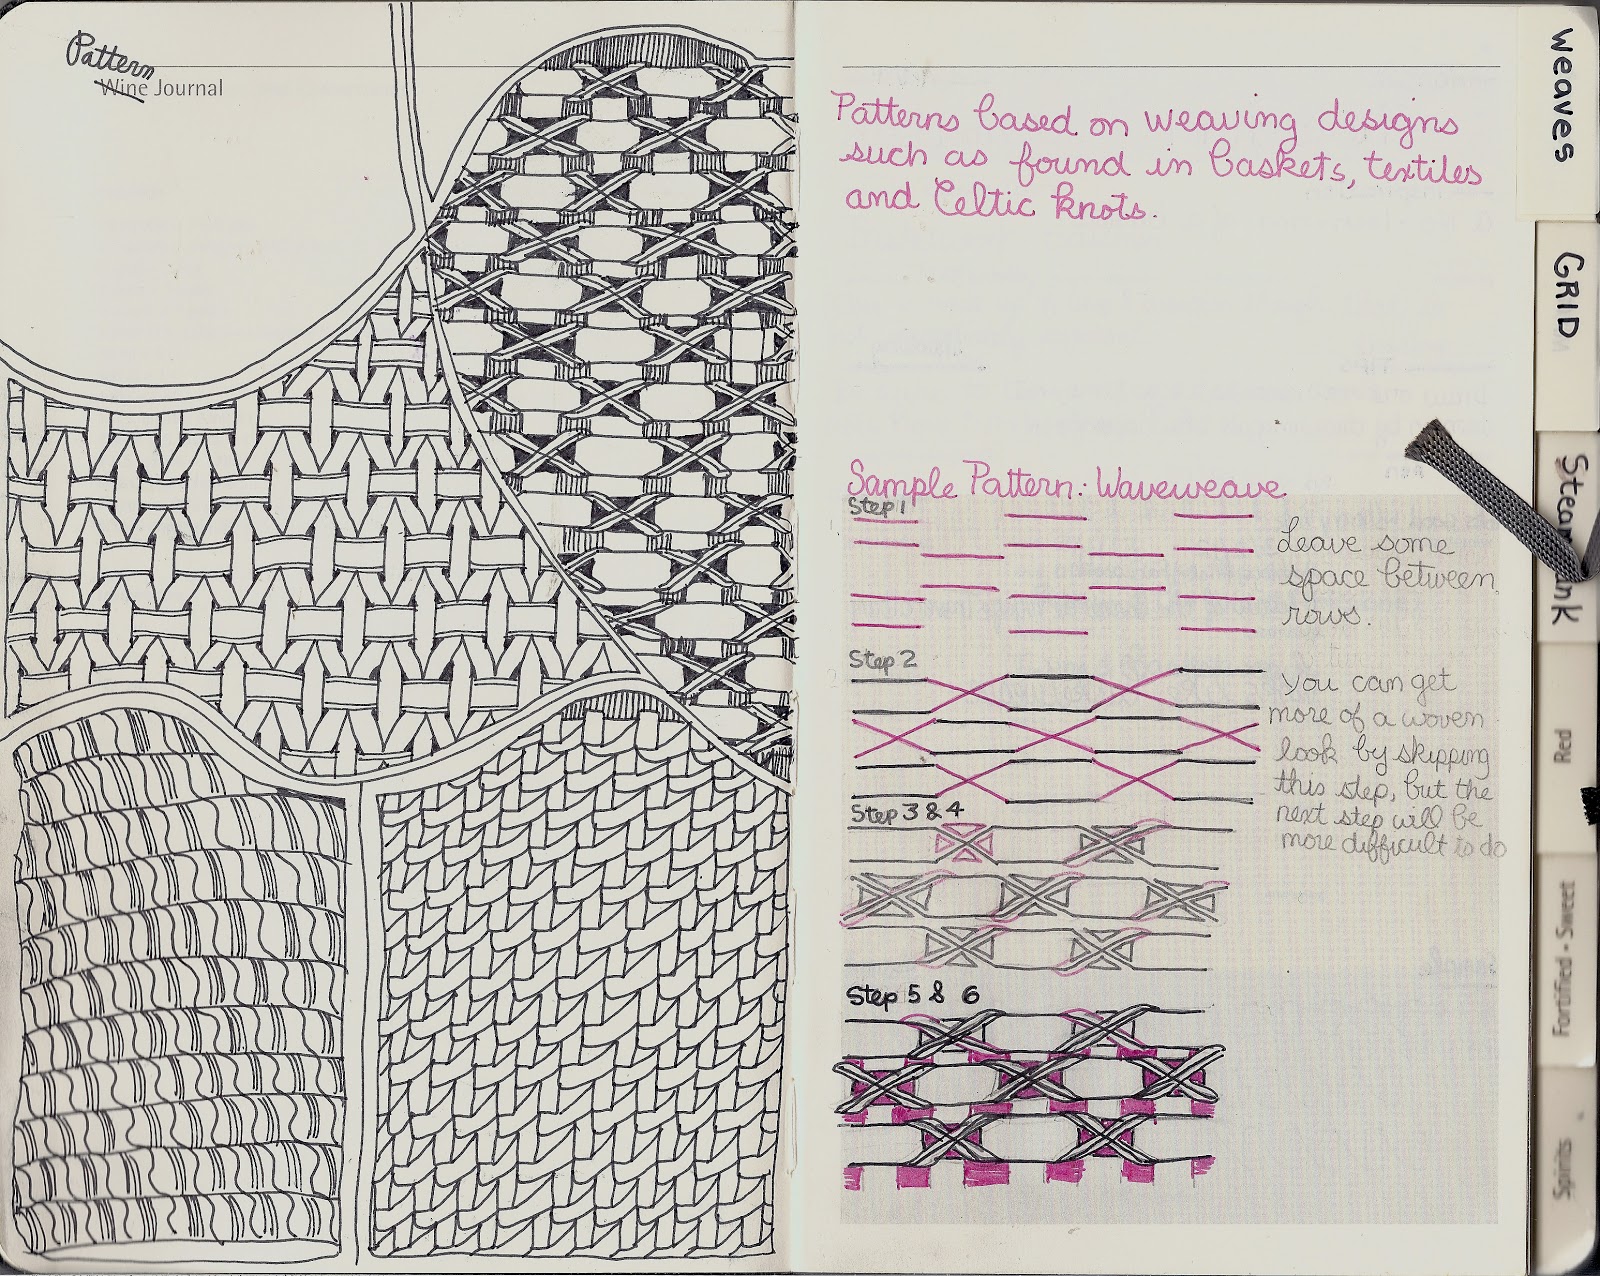 Pattern
Wine Journal
Patterns based on weaving designs
such as found in baskets, textiles
and Celtic knots.
Sample Pattern: Waveweave
Step 1
Leave some
space between
rows.
Step 2
You can get
more of a woven
look by skipping
this step, but the
next step will be
more difficult to do
Step 3 & 4
Step 5 & 6
weaves
GRID
Red
Fortified - Sweet
Spirits